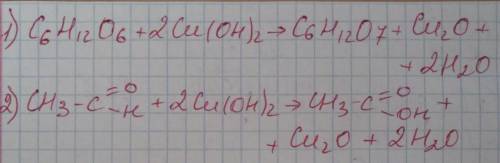 1) C₆H₁₂O₆ + 2Cu(OH)₂ → C₆H₁₂O₇ + Cu₂O +
+ 2H₂O
2) CH₃-C(=O)-H + 2Cu(OH)₂ → CH₃-C(=O)-OH +
+ Cu₂O + 2H₂O